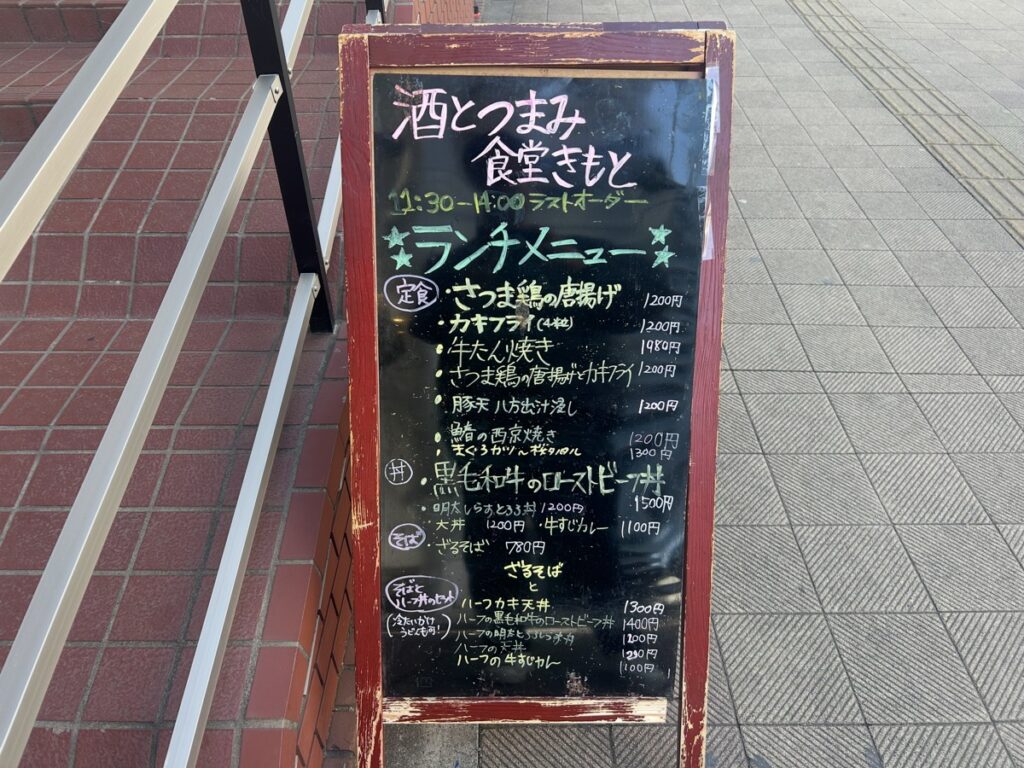 酒とつまみ
食堂きもと
11:30-14:00 ラストオーダー
☆ランチメニュー☆
定食 ・さつま鶏の唐揚げ 1200円
・カキフライ(4粒) 1200円
・牛たん焼き 1980円
・さつま鶏の唐揚げとカキフライ 1200円
・豚天 八方出汁浸し 1200円
・鰆の西京焼き 1200円
まぐろカツ 1300円
丼 ・黒毛和牛のローストビーフ丼 1500円
・明太しらすとろろ丼 1200円
天丼 1200円 ・牛すじカレー 1100円
そば ・ざるそば 780円
ざるそば
と
そばとハーフ丼のセット
(冷たいかけうどんも可!)
ハーフカキ天丼 1300円
ハーフの黒毛和牛のローストビーフ丼 1400円
ハーフの明太 1200円
ハーフの天丼
ハーフの牛すじカレー 1100円